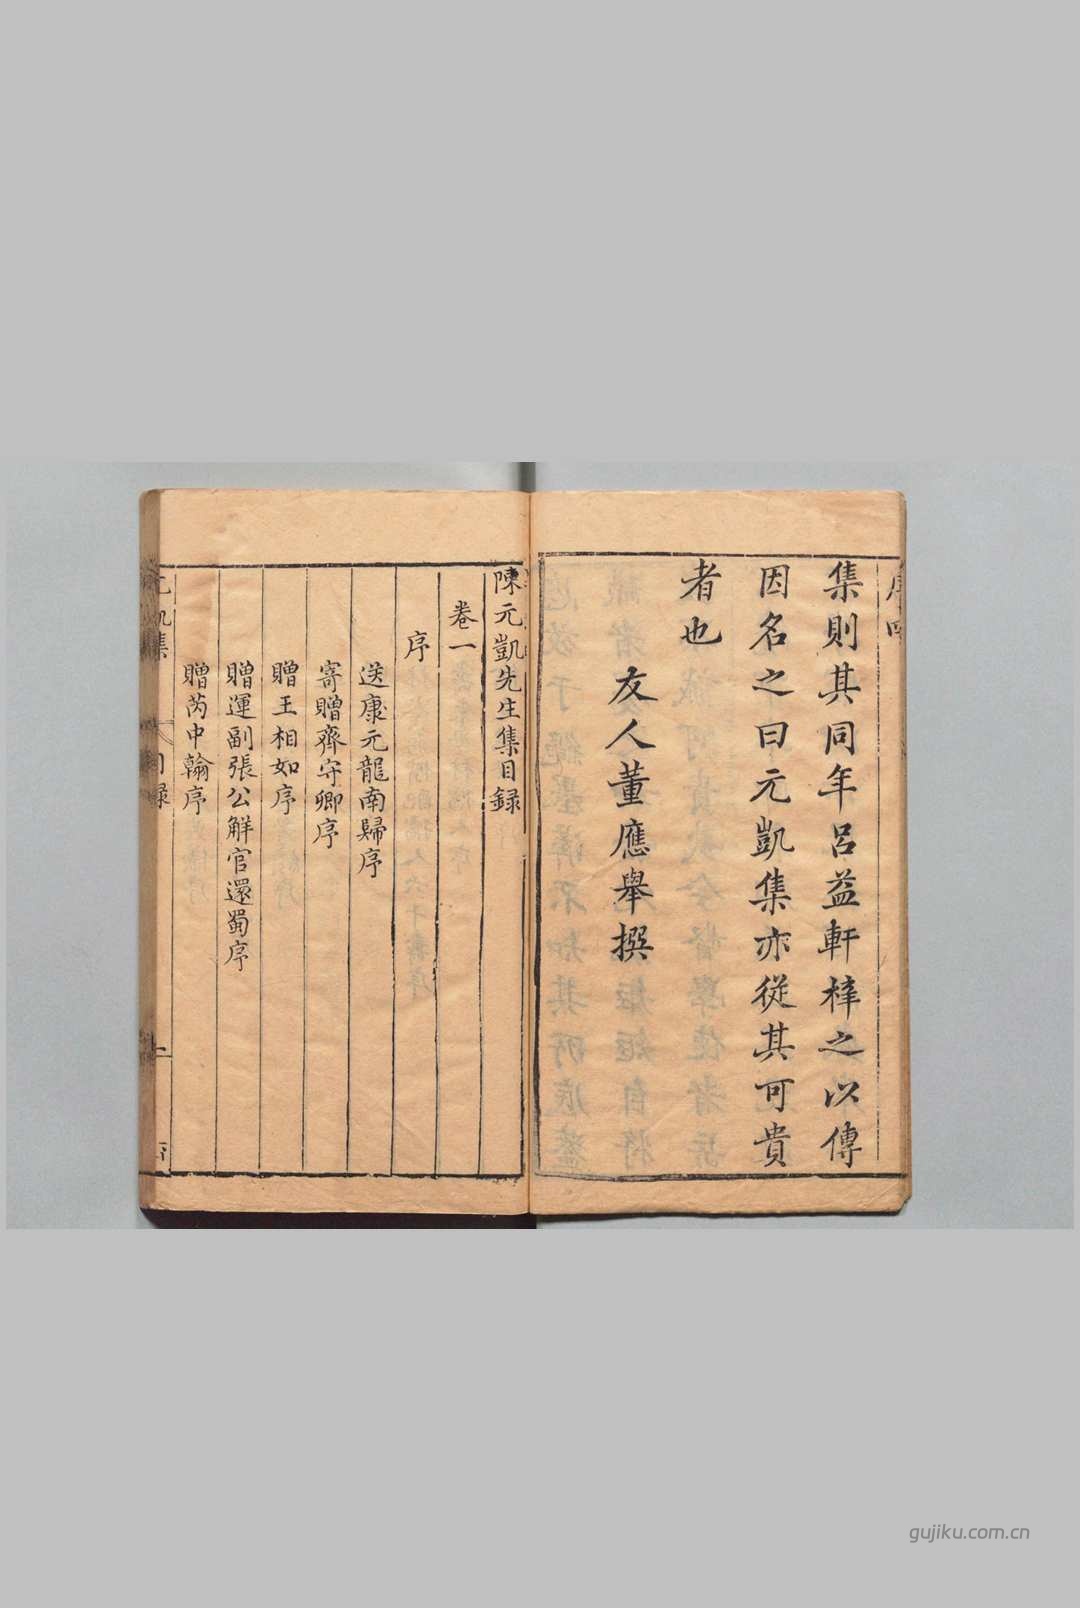 集則其同年呂益軒梓之以傳
因名之曰元凱集亦從其可貴
者也
友人董應舉撰
陳元凱先生集目録
卷一
序
送康元龍南歸序
寄贈齊守卿序
贈王相如序
贈運副張公解官還蜀序
贈芮中翰序
gujiku.com.cn